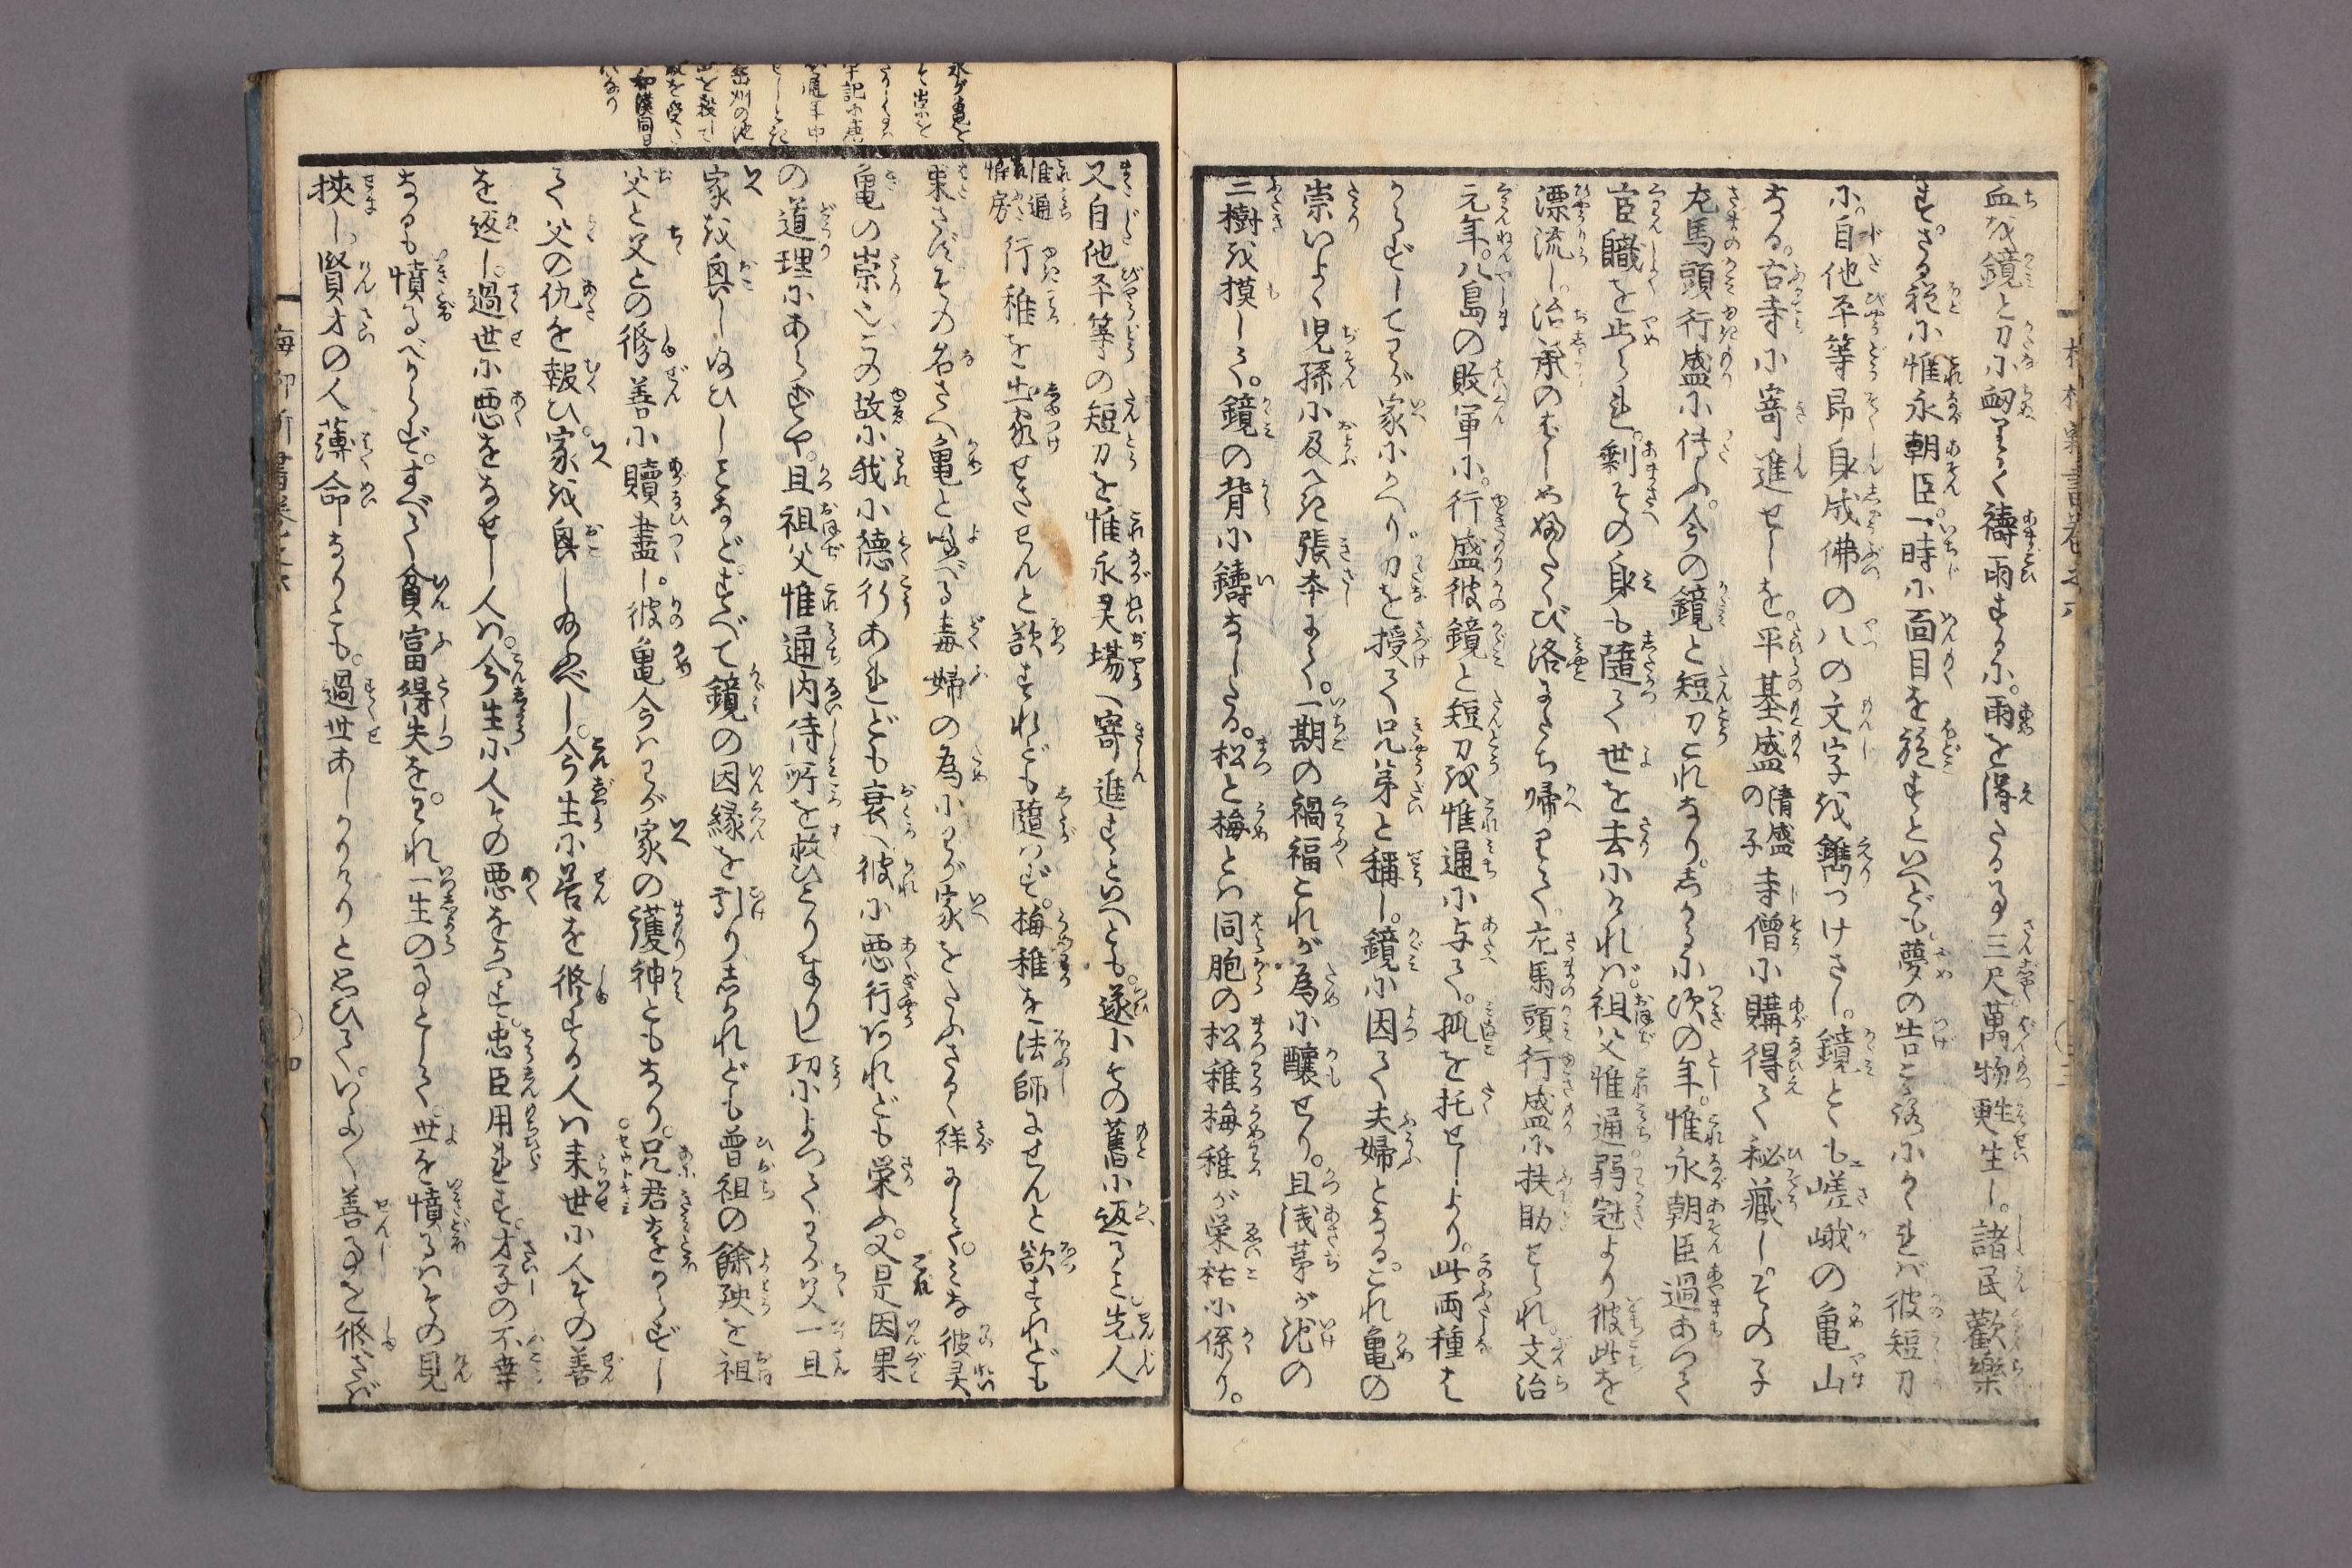 血を鏡と刀に衂りて禱雨するに。雨を得たる事三尺。萬物甦生し。諸民歡樂
す。さる程に惟永朝臣。一時に面目を施すといへども。夢の告こゝろにかゝれば彼短刀
に。自他平等即身成佛の八の文字を鐫つけさし。鏡とゝもに嵯峨の亀山
なる。古寺に寄進せしを。平基盛清盛の子寺僧に購得て秘藏し。その子
左馬頭行盛に傳ふ。今の鏡と短刀これなり。しかるに次の年。惟永朝臣過あつて
官職を止られ。剰その身も随て世を去にければ。祖父惟通。弱冠より彼此を
漂流し。治承のはじめふたゝび洛にたち帰りて。左馬頭行盛に扶助せられ。文治
元年。八島の敗軍に。行盛彼鏡と短刀を惟通に与て。孤を托せしより。此両種は
からずしてわが家にかへり。刀を授て兄弟と稱し。鏡に因て夫婦となる。これ亀の
祟いよゝ児孫に及べき張本にて。一期の禍福これが為に釀せり。且浅茅が池の
二樹を摸して。鏡の背に鑄なしたる。松と梅とは同胞の松稚梅稚が栄枯に係り。
又自他平等の短刀を惟永灵場へ寄進すといへども。遂にその舊に返ること先人
惟通惟房行稚を出家せさせんと欲すれども随はず。梅稚を法師にせんと欲すれども
果さず。その名さへ亀と喚べる毒婦の為にわが家をたふさるゝ祥にして。みな彼灵
亀の祟也。この故に我に德行あれども衰へ彼に悪行あれども栄ふ。又是因果
の道理にあらずや。且祖父惟通内侍所を救ひとりまゐらし功によつてわが父一旦
家を興し給ひしことなど。すべて鏡の因縁を引りしかれども曽祖の餘殃を祖
父と父との修善に贖盡し。彼亀今はわが家の護神ともなり。兄君ならずし
て父の仇を報ひ。家を興し給ふべし。今生に善を修する人は来世に人その善
を返し。過世に悪をなせし人は。今生に人その悪をかへす。忠臣用られず。才子の不幸
なるも憤るべからず。すべて貧富得失を。われ一生の事として。世を憤るはその見
挟し。賢才の人薄命なりとも。過世あしかりけりと思ひて。いよゝ善事を修さば